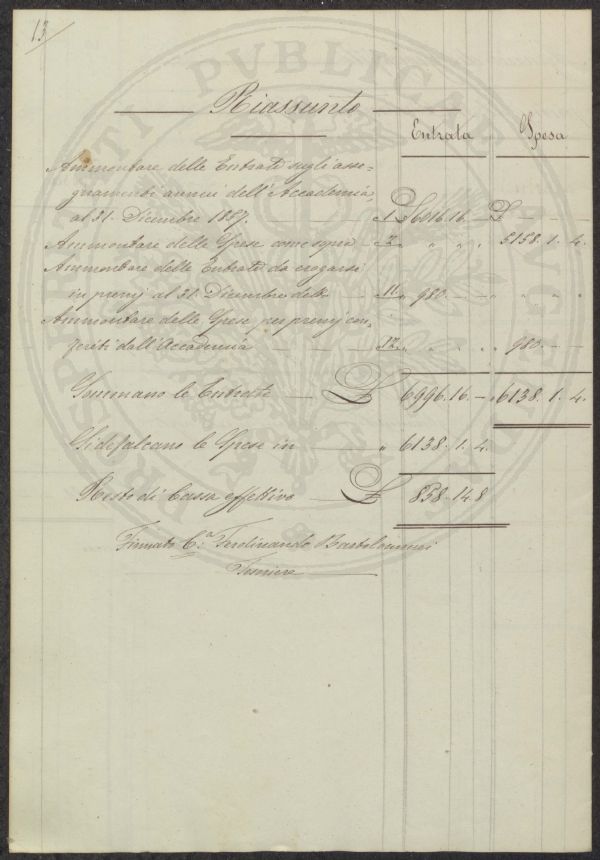 13
Riassunto
Entrata Spesa
Ammontare delle Entrate sugli asse-
gnamenti annui dell'Accademia,
al 31. Dicembre 1857. £ 6016.16.— £ — — —
Ammontare delle Spese come sopra „ „ „ „ 5158. 1. 4.
Ammontare delle Entrate da erogarsi
in premj al 31. Dicembre detto 11 „ 980. — — „ „ „
Ammontare delle Spese per premj con-
feriti dall'Accademia 12 „ „ „ „ 980. — —
Sommano le Entrate — £ 6996.16.— 6138. 1. 4.
Si defalcano le Spese in — „ 6138. 1. 4.
Resto di Cassa effettivo — £ 858. 14. 8
Firmato C.ᵉ Ferdinando Bartolommei
PROSPERITATI PVBLICAE AVGENDAE